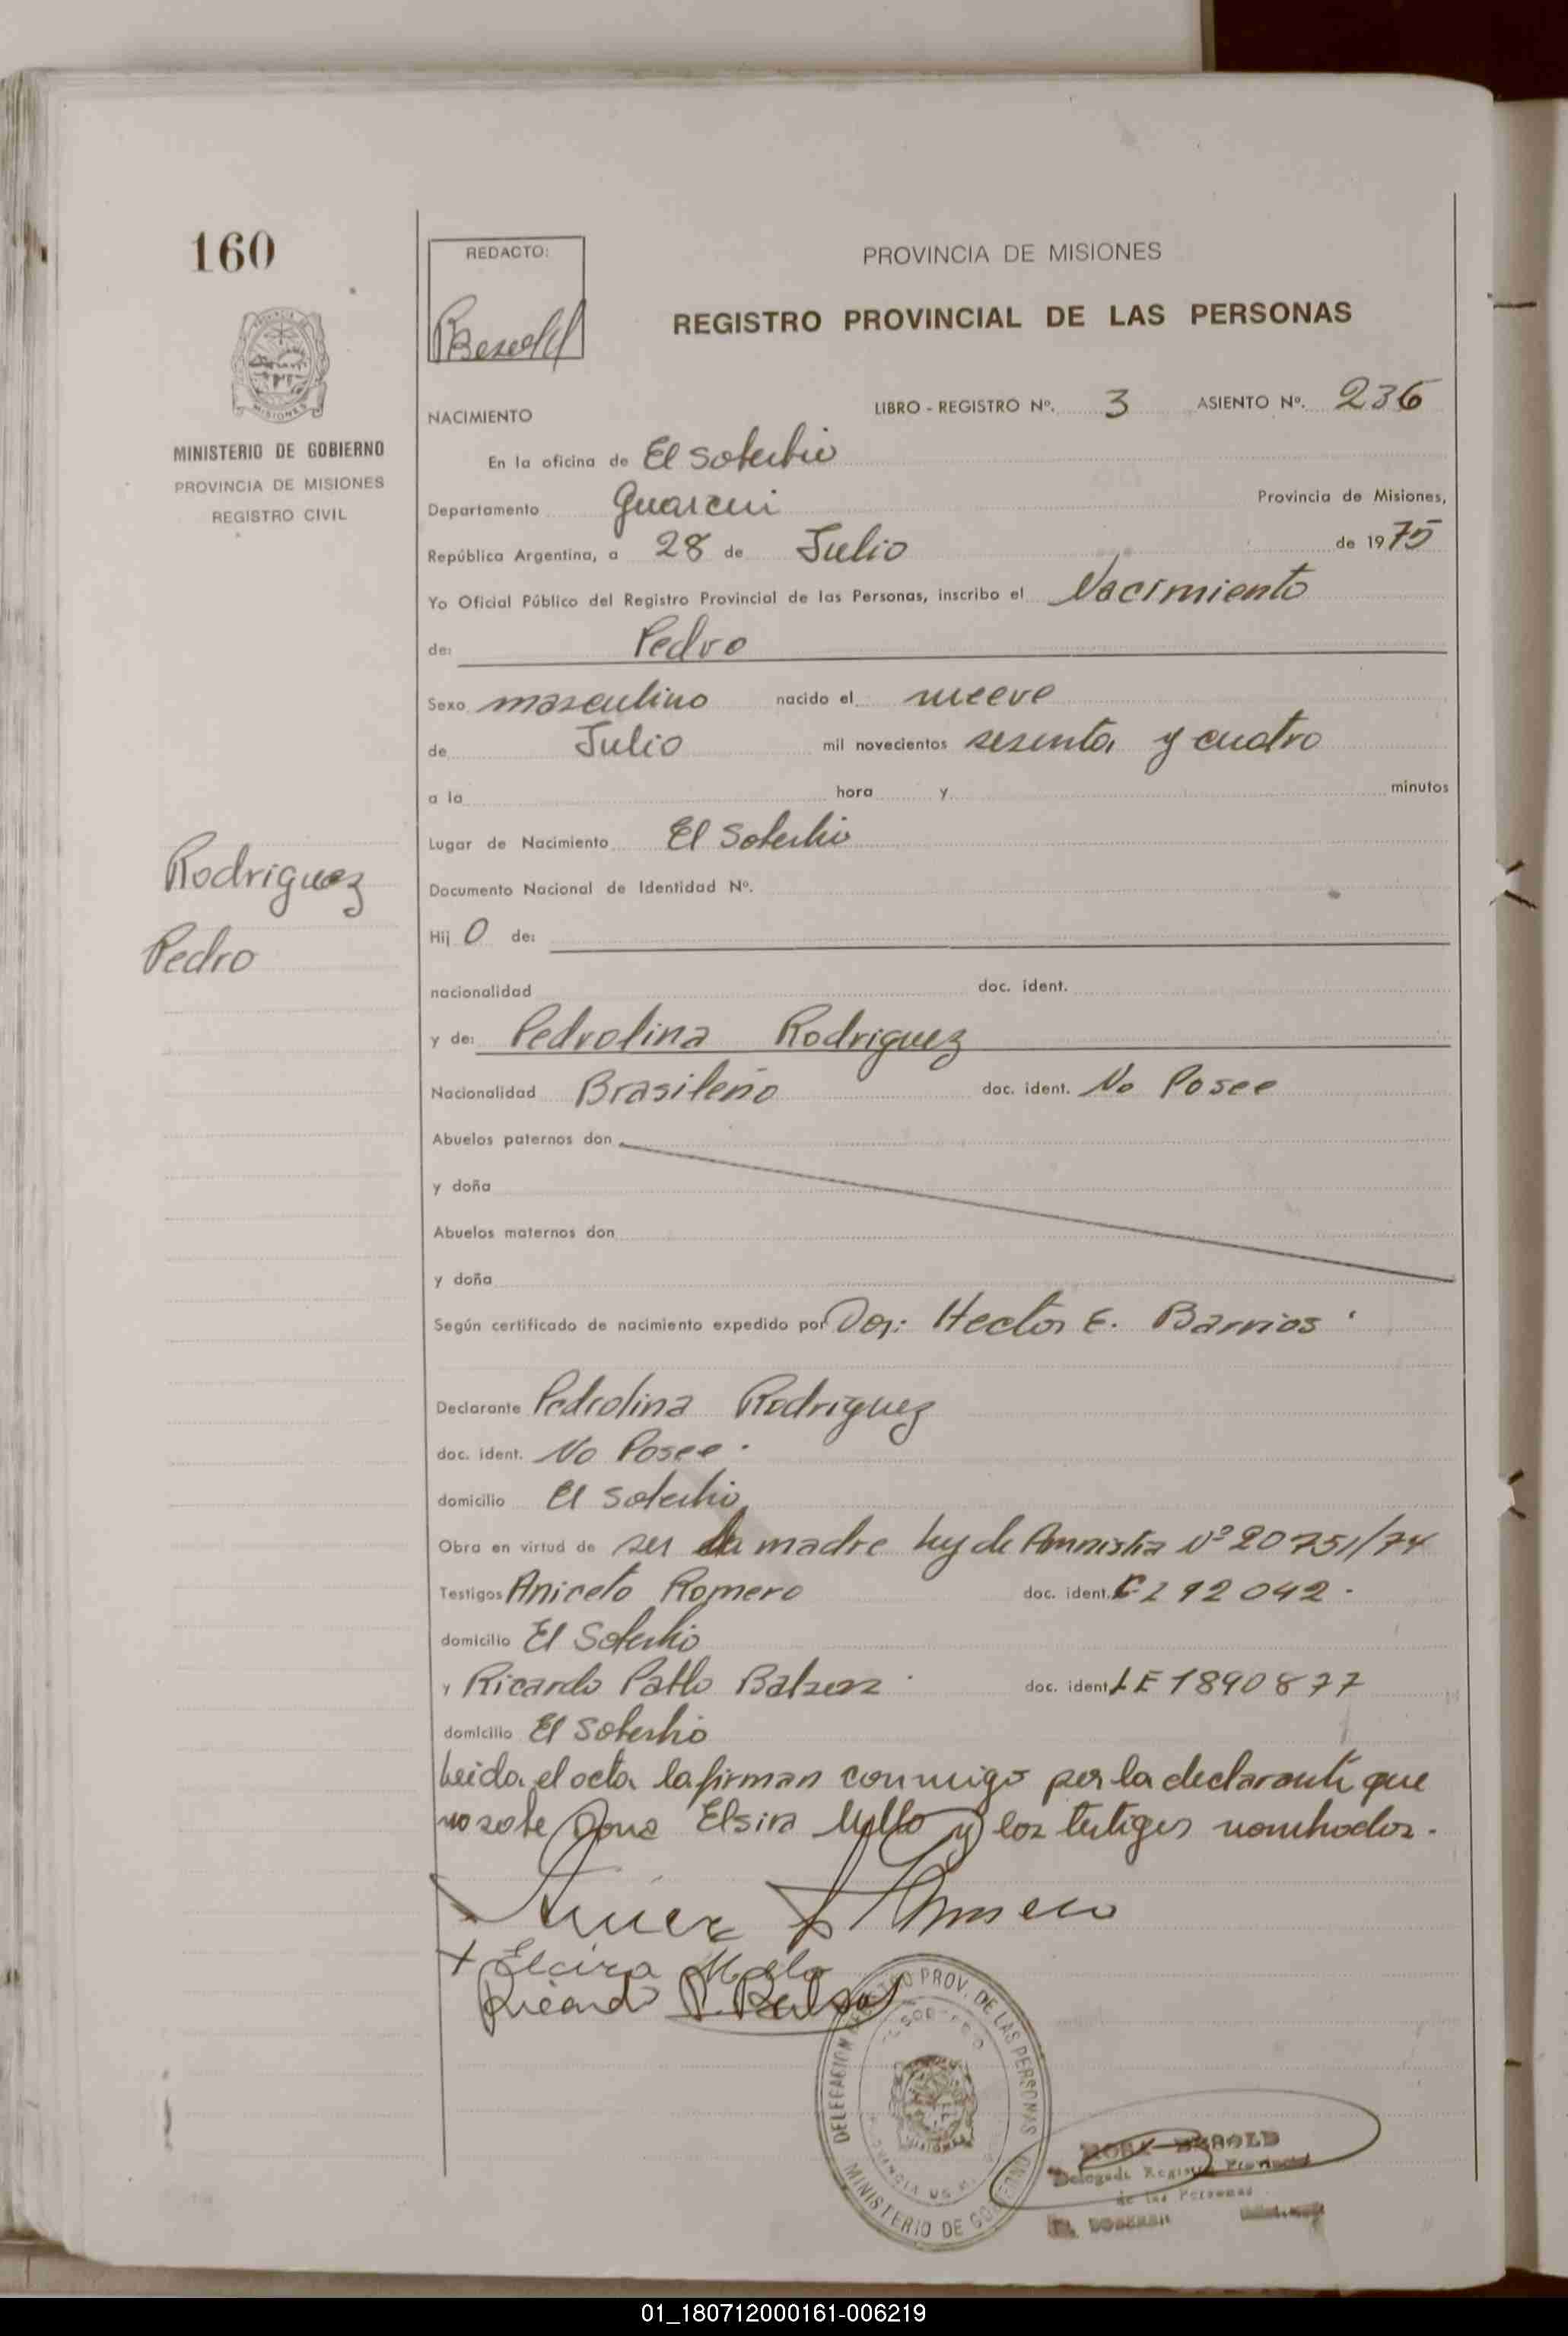 160
REDACTO:
PROVINCIA DE MISIONES
REGISTRO PROVINCIAL DE LAS PERSONAS
MISIONES
MINISTERIO DE GOBIERNO
PROVINCIA DE MISIONES
REGISTRO CIVIL
NACIMIENTO LIBRO - REGISTRO Nº. 3 ASIENTO Nº. 236
En la oficina de El Soberbio
Departamento Guarani Provincia de Misiones,
República Argentina, a 28 de Julio de 1975
Yo Oficial Público del Registro Provincial de las Personas, inscribo el Nacimiento
de: Pedro
Sexo masculino nacido el nueve
de Julio mil novecientos sesenta y cuatro
a la hora y minutos
Lugar de Nacimiento El Soberbio
Documento Nacional de Identidad Nº.
Rodriguez
Pedro
Hij O de:
nacionalidad doc. ident.
y de: Pedrolina Rodriguez
Nacionalidad Brasileño doc. ident. No Posee
Abuelos paternos don
y doña
Abuelos maternos don
y doña
Según certificado de nacimiento expedido por Dor: Hector E. Barrios
Declarante Pedrolina Rodriguez
doc. ident. No Posee.
domicilio El Soberbio
Obra en virtud de ser la madre ley de Amnistia Nº 20751/74
Testigos Aniceto Romero doc. ident. CI 92042.
domicilio El Soberbio
y Ricardo Pablo doc. ident. LE 1890877
domicilio El Soberbio
Leida el acta la firman conmigo por la declarante que
no sabe Doña Elsira Mello y los testigos nombrados.
Romero
+ Elcira Mello
Ricardo P.
DELEGACION REGISTRO PROV. DE LAS PERSONAS
EL SOBERBIO
MISIONES
PROVINCIA DE
MINISTERIO DE GOBIERNO
ROSA BESOLD
Delegada Registro Provincial
de las Personas
EL SOBERBIO
01_180712000161-006219